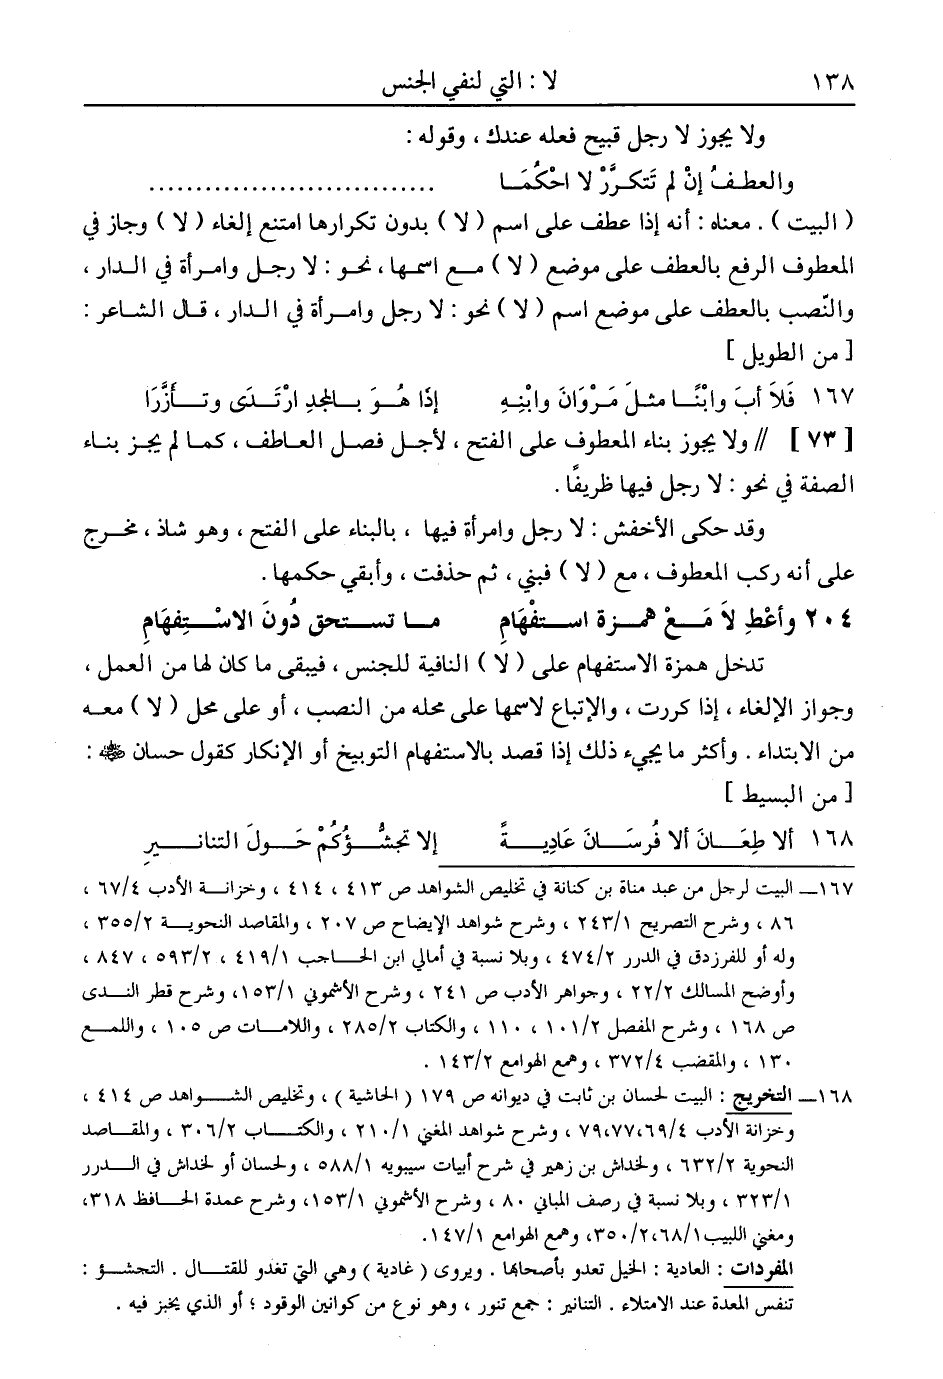 ١٣٨ لا : التي لنفي الجنس
ولا يجوز لا رجل قبيح فعله عندك ، وقوله :
والعطـفُ إنْ لم تَتكـرَّرْ لا احْكُمَـا ..............................
( البيت ) . معناه : أنه إذا عطف على اسم ( لا ) بدون تكرارها امتنع إلغاء ( لا ) وجاز في
المعطوف الرفع بالعطف على موضع ( لا ) مـع اسمهـا ، نحـو : لا رجـل وامـرأة في الـدار ،
والنّصب بالعطف على موضع اسم ( لا ) نحو : لا رجل وامـرأة في الـدار ، قـال الشـاعر :
[ من الطويل ]
١٦٧ فَلاَ أبَ وابْنًـا مثـلَ مَرْوَانَ وابْنِـهِ إذَا هُـوَ بـالمجدِ ارْتَـدَى وتـأَزَّرَا
[ ٧٣ ] // ولا يجوز بناء المعطوف على الفتح ، لأجـل فصـل العـاطف ، كمـا لم يجـز بنـاء
الصفة في نحو : لا رجل فيها ظريفًا .
وقد حكى الأخفش : لا رجل وامرأة فيها ، بالبناء على الفتح ، وهو شاذ ، مخـرج
على أنه ركب المعطوف ، مع ( لا ) فبني ، ثم حذفت ، وأبقي حكمها .
٢٠٤ وأعْطِ لاَ مَـعْ همـزة استـفْهَامِ مـا تستـحق دُونَ الاسْـتِفْهَامِ
تدخل همزة الاستفهام على ( لا ) النافية للجنس ، فيبقى ما كان لها من العمل ،
وجواز الإلغاء ، إذا كررت ، والإتباع لاسمها على محله من النصب ، أو على محل ( لا ) معـه
من الابتداء . وأكثر ما يجيء ذلك إذا قصد بالاستفهام التوبيخ أو الإنكار كقول حسان ﷺ :
[ من البسيط ]
١٦٨ ألا طِعَـانَ ألا فُرسَـانَ عَاديِـةً إلا تجشُّـؤُكُمْ حَـولَ التنانـيرِ
١٦٧ـ البيت لرجل من عبد مناة بن كنانة في تخليص الشواهد ص ٤١٣ ، ٤١٤ ، وخزانـة الأدب ٦٧/٤ ،
٨٦ ، وشرح التصريح ٢٤٣/١ ، وشرح شواهد الإيضاح ص ٢٠٧ ، والمقاصد النحويـة ٣٥٥/٢ ،
وله أو للفرزدق في الدرر ٤٧٤/٢ ، وبلا نسبة في أمالي ابن الحـاجب ٤١٩/١ ، ٥٩٣/٢ ، ٨٤٧ ،
وأوضح المسالك ٢٢/٢ ، وجواهر الأدب ص ٢٤١ ، وشرح الأشموني ١٥٣/١، وشرح قطر النـدى
ص ١٦٨ ، وشرح المفصل ١٠١/٢ ، ١١٠ ، والكتاب ٢٨٥/٢ ، واللامـات ص ١٠٥ ، واللمـع
١٣٠ ، والمقضب ٣٧٢/٤ ، وهمع الهوامع ١٤٣/٢ .
١٦٨ـ التخريج : البيت لحسان بن ثابت في ديوانه ص ١٧٩ ( الحاشية ) ، وتخليص الشـواهد ص ٤١٤ ،
وخزانة الأدب ٦٩/٤،٧٧،٧٩ ، وشرح شواهد المغني ٢١٠/١ ، والكتـاب ٣٠٦/٢ ، والمقـاصد
النحوية ٦٣٢/٢ ، ولخداش بن زهير في شرح أبيات سيبويه ٥٨٨/١ ، ولحسان أو لخداش في الـدرر
٣٢٣/١ ، وبلا نسبة في رصف المباني ٨٠ ، وشرح الأشموني ١٥٣/١، وشرح عمدة الحـافظ ٣١٨،
ومغني اللبيب٦٨/١،٣٥٠/٢، وهمع الهوامع ١٤٧/١.
المفردات : العادية : الخيل تعدو بأصحابها . ويروى ( غادية ) وهي التي تغدو للقتـال . التجشـؤ :
تنفس المعدة عند الامتلاء . التنانير : جمع تنور ، وهو نوع من كوانين الوقود ؛ أو الذي يخبز فيه .